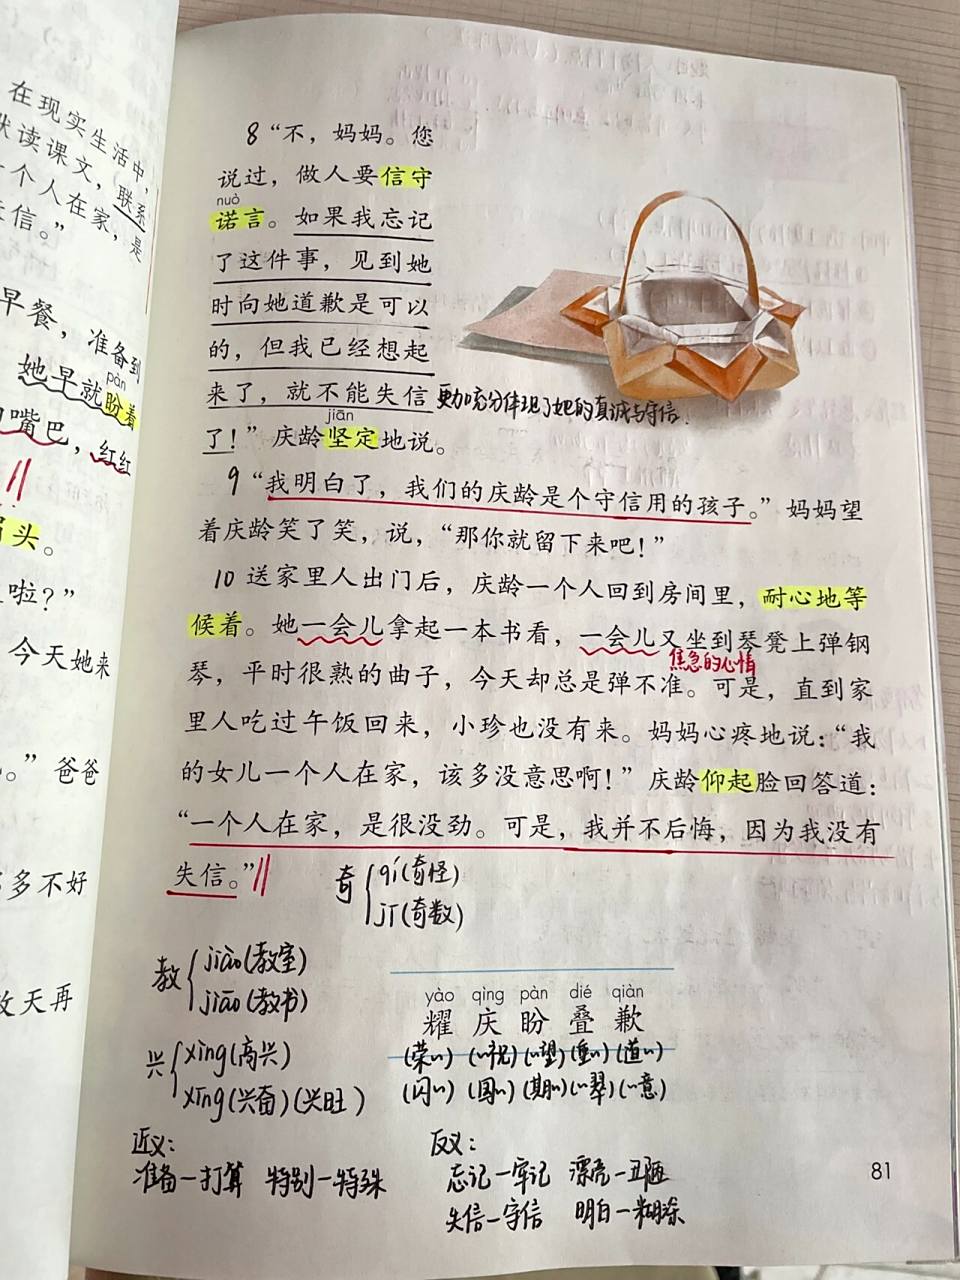 在现实生活中，
默读课文，联系
一个人在家，是
信。”
早餐，准备到
pàn
她早就盼着
嘴巴，红红
头。
啦？”
今天她来
。”爸爸
多不好
天再
8 “不，妈妈。您
说过，做人要信守
nuò
诺言。如果我忘记
了这件事，见到她
时向她道歉是可以
的，但我已经想起
来了，就不能失信
更加充分体现了她的真诚与守信！
jiān
了！”庆龄坚定地说。
9 “我明白了，我们的庆龄是个守信用的孩子。”妈妈望
着庆龄笑了笑，说，“那你就留下来吧！”
10 送家里人出门后，庆龄一个人回到房间里，耐心地等
候着。她一会儿拿起一本书看，一会儿又坐到琴凳上弹钢
焦急的心情
琴，平时很熟的曲子，今天却总是弹不准。可是，直到家
里人吃过午饭回来，小珍也没有来。妈妈心疼地说：“我
的女儿一个人在家，该多没意思啊！”庆龄仰起脸回答道：
“一个人在家，是很没劲。可是，我并不后悔，因为我没有
失信。”
奇 qí(奇怪)
jī(奇数)
教 jiào(教室)
jiāo(教书)
兴 xìng(高兴)
xīng(兴奋)(兴旺)
yào qìng pàn dié qiàn
耀 庆 盼 叠 歉
(荣〃) (〃祝) (〃望) (重〃) (道〃)
(闪〃) (国〃) (期〃) (〃翠) (〃意)
近义：
准备—打算 特别—特殊
反义：
忘记—牢记 漂亮—丑陋
失信—守信 明白—糊涂
81